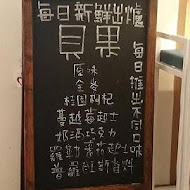 每日新鮮出爐
貝果
每日推出不同口味
原味
全麥
桂圓枸杞
蔓越莓起士
奶酒巧克力
羅勒蕃茄起士